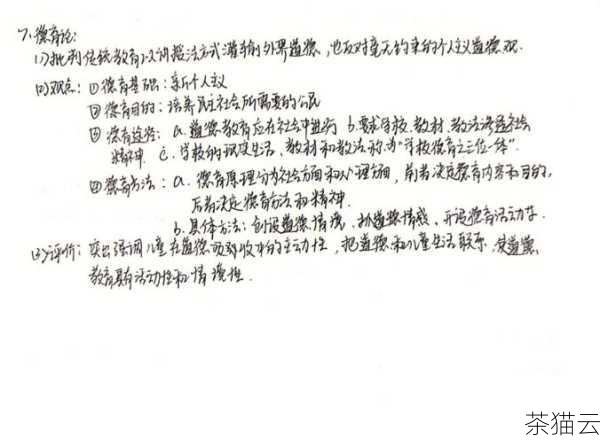 7、德育论:
(1)批判传统教育以训诫方式灌输外界道德,也反对毫无约束的个人主义道德观.
(2)观点: ①德育基础: 新个人主义
②德育目的: 培养民主社会所需要的公民
③德育途径: a. 道德教育应在社会中进行 b.要求学校、教材、教法渗透社会
精神 c. 学校的现段生活、教材和教法称为“学校德育之三位一体”.
④德育方法: a. 德育原理分为社会方面和心理方面, 前者决定德育内容和目的,
后者决定德育方法和精神.
b. 具体方法: 创设道德情境、抓道德情感、开设德育活动等.
(3)评价: 突出强调儿童在道德吸收中的主动性, 把道德和儿童生活联系. 使道德
教育具有活动性和情境性.
茶猫云